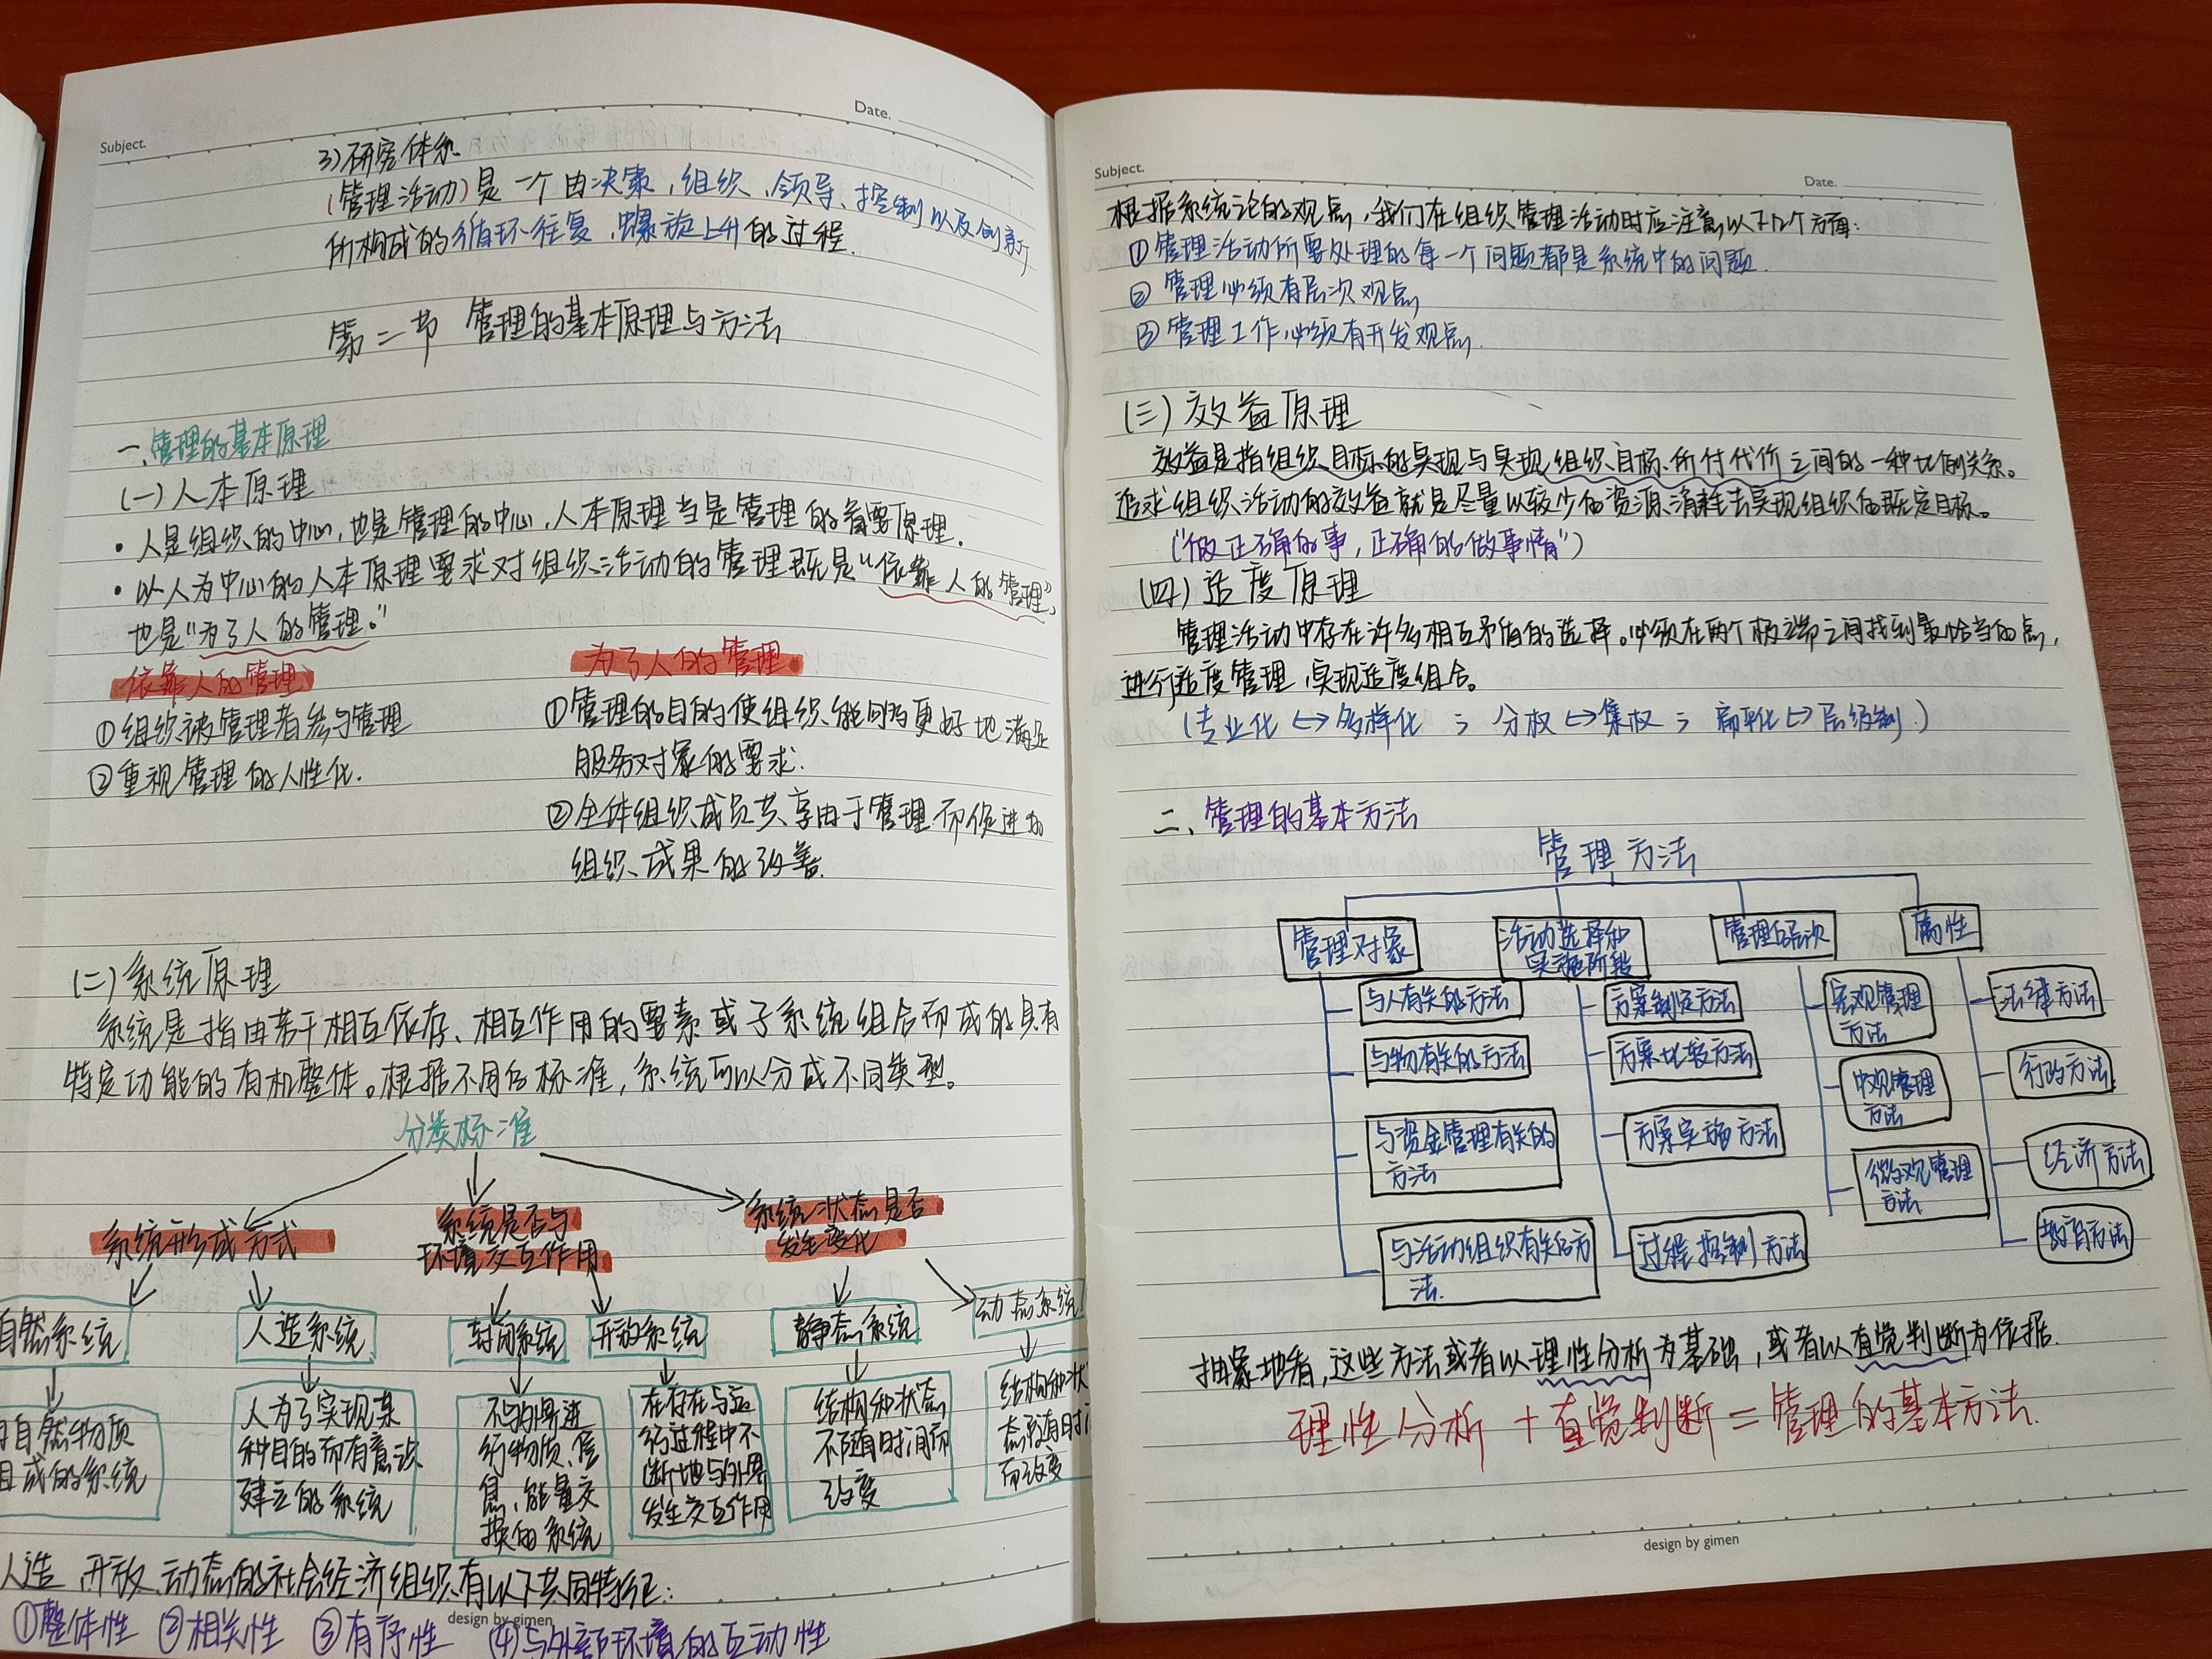 Subject.
Date.
3)研究体系
(管理活动)是一个由决策,组织,领导、控制以及创新
所构成的循环往复,螺旋上升的过程.
第二节 管理的基本原理与方法
一、管理的基本原理
(一)人本原理
• 人是组织的中心,也是管理的中心,人本原理当是管理的首要原理.
• 以人为中心的人本原理要求对组织活动的管理既是“依靠人的管理”,
也是“为了人的管理。”
依靠人的管理
①组织被管理者参与管理
②重视管理的人性化.
为了人的管理
①管理的目的使组织能够更好地满足
服务对象的要求.
②全体组织成员共享由于管理而促进的
组织成果的改善.
(二)系统原理
系统是指由若干相互依存、相互作用的要素或子系统组合而成的具有
特定功能的有机整体。根据不同的标准,系统可以分成不同类型。
分类标准
系统形成方式
系统是否与
环境交互作用
系统状态是否
发生变化
自然系统
人造系统
封闭系统
开放系统
静态系统
动态系统
自然物质
组成的系统
人为了实现某
种目的而有意识
建立的系统
不与外界进
行物质、信
息、能量交
换的系统
在存在与运
行过程中不
断地与外界
发生交互作用
结构和状态
不随时间而
改变
结构和状
态随时
而改变
人造、开放、动态的社会经济组织有以下共同特征:
①整体性 ②相关性 ③有序性 ④与外部环境的互动性
design by gimen
Subject.
Date.
根据系统论的观点,我们在组织管理活动时应注意以下几个方面:
①管理活动所要处理的每一个问题都是系统中的问题.
②管理必须有层次观点
③管理工作必须有开发观点.
(三)效益原理
效益是指组织目标的实现与实现组织目标所付代价之间的一种比例关系。
追求组织活动的效益就是尽量以较少的资源消耗去实现组织的既定目标。
(“做正确的事,正确的做事情”)
(四)适度原理
管理活动中存在许多相互矛盾的选择。必须在两个极端之间找到最恰当的点,
进行适度管理,实现适度组合。
(专业化↔多样化;分权↔集权;扁平化↔层级制.)
二、管理的基本方法
管理方法
管理对象
活动选择和
实施阶段
管理的层次
属性
与人有关的方法
与物有关的方法
与资金管理有关的
方法
与活动组织有关的方
法.
方案制定方法
方案比较方法
方案实施方法
过程控制方法
宏观管理
方法
中观管理
方法
微观管理
方法
法律方法
行政方法
经济方法
教育方法
抽象地看,这些方法或者以理性分析为基础,或者以直觉判断为依据.
理性分析+直觉判断=管理的基本方法.
design by gimen